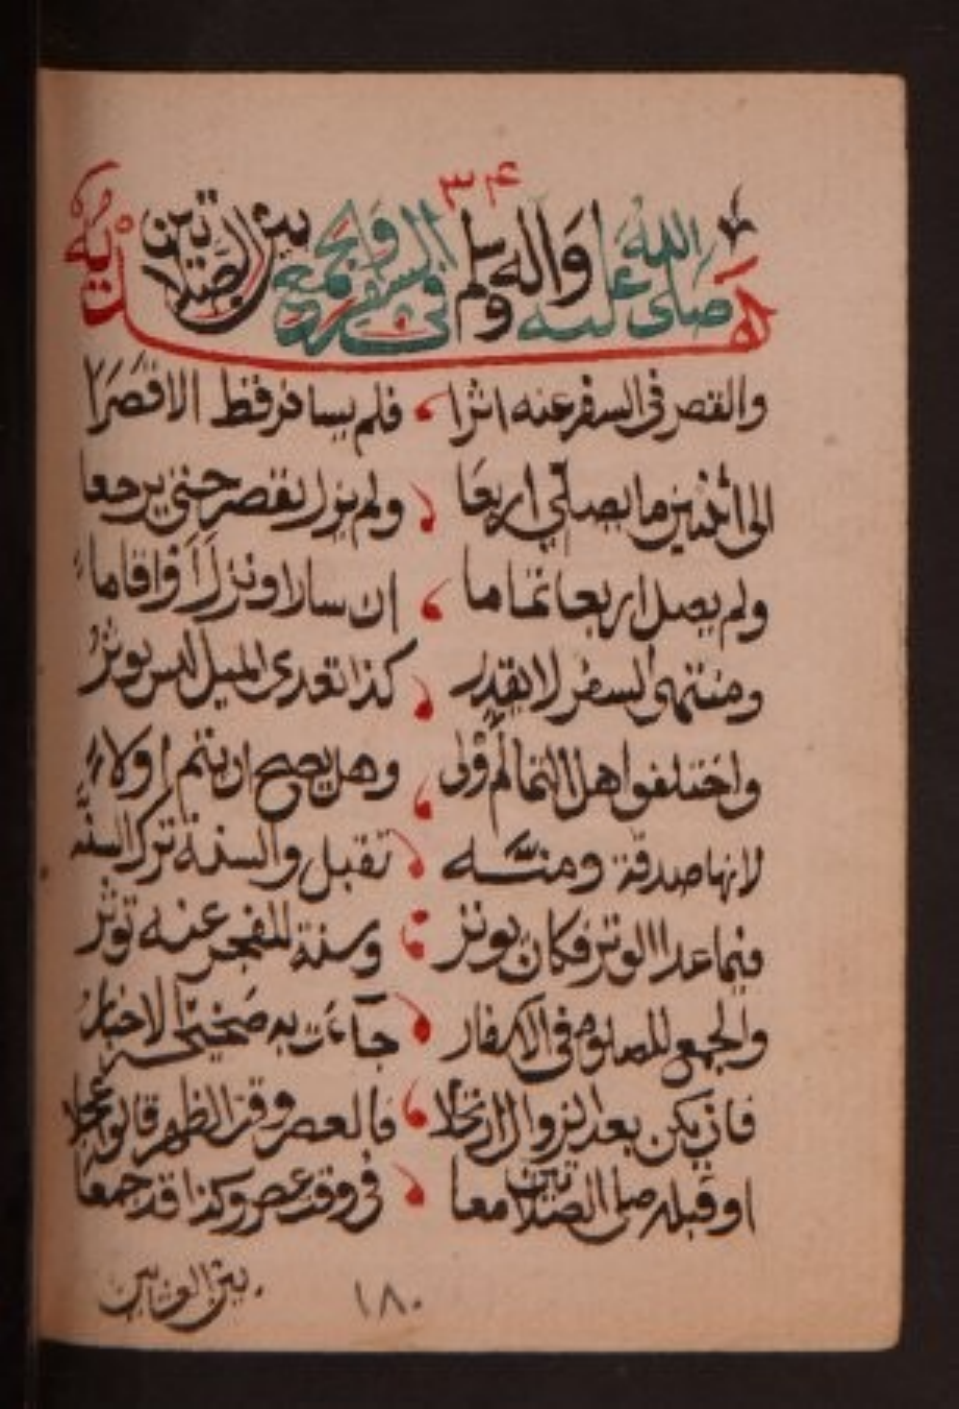 ٣٤
صلى الله عليه وآله وسلم في السفر وجمعه بين الصلاتين
والقصر في السفر عنه اثرا فلم يسافر قط الا قصرا
الى اثنتين ما يصلي اربعا ولم يزل يقصر حتى يرجعا
ولم يصل اربعا تماما ان سار او نزل او اقاما
ومنتهى السفر لا يقدر كذا تعدى الميل ليس يوثر
واختلفوا هل الاتمام وهل يصح ان يتم او لا
لانها صدقة ومنه تقبل والسنة ترك السنه
فيما عدا الوتر فكان يوتر وسنة للفجر عنه توثر
والجمع للصلوة في الاسفار جآءت به صحيحة الاخبار
فان يكن بعد الزوال ارتحلا فالعصر وقت الظهر قالوا عجلا
او قبله صلى الصلاتين معا في وقت عصر وكذا قد جمعا
١٨٠
بين العشاين